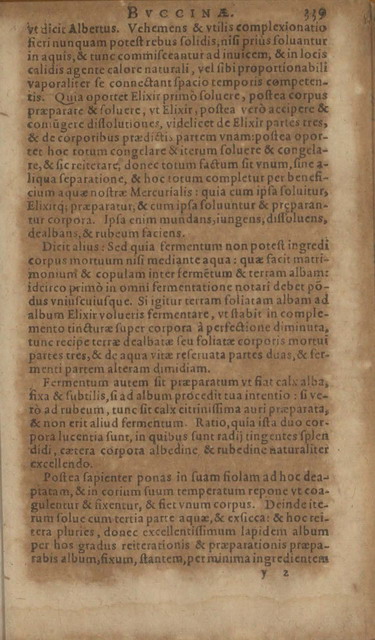 BVCCINÆ. 339
vt dicit Albertus. Vehemens & vtilis complexionatio
fieri nunquam potest rebus solidis, nisi prius soluantur
in aquis, & tunc commisceantur ad inuicem, & in locis
calidis agente calore naturali, vel sibi proportionabili
vaporaliter se connectant spacio temporis competen-
tis. Quia oportet Elixir primò soluere, postea corpus
præparate & soluere, vt Elixir; postea verò accipere &
coniūgere dissolutiones, videlicet de Elixir partes tres,
& de corporibus prædictis partem vnam: postea opor-
tet hoc totum congelare & iterum soluere & congela-
re, & sic reiterare, donec totum factum sit vnum, sine a-
liqua separatione, & hoc totum completur per benefi-
cium aquæ nostræ Mercurialis: quia cum ipsa soluitur,
Elixirq; præparatur, & cum ipsa soluuntur & præparan-
tur corpora. Ipsa enim mundans, iungens, dissoluens,
dealbans, & rubeum faciens.
Dicit alius: Sed quia fermentum non potest ingredi
corpus mortuum nisi mediante aqua: quæ facit matri-
monium & copulam inter fermētum & terram albam:
idcirco primò in omni fermentatione notari debet pō-
dus vniuscuiusque. Si igitur terram foliatam albam ad
album Elixir volueris fermentare, vt stabit in comple-
mento tincturæ super corpora à perfectione diminuta,
tunc recipe terræ dealbatæ seu foliatæ corporis mortui
partes tres, & de aqua vitæ reseruata partes duas, & fer-
menti partem alteram dimidiam.
Fermentum autem sit præparatum vt fiat calx alba,
fixa & subtilis, si ad album procedit tua intentio: si ve-
rò ad rubeum, tunc sit calx citrinissima auri præparata,
& non erit aliud fermentum. Ratio, quia ista duo cor-
pora lucentia sunt, in quibus sunt radij tingentes splen
didi, cætera corpora albedine & rubedine naturaliter
excellendo.
Postea sapienter ponas in suam fiolam ad hoc dea-
ptatam, & in corium suum temperatum repone vt coa-
gulentur & fixentur, & fiet vnum corpus. Deinde ite-
rum solue cum tertia parte aquæ, & exsicca: & hoc rei-
tera pluries, donec excellentissimum lapidem album
per hos gradus reiterationis & præparationis præpa-
rabis album, fixum, stantem, per minima ingredientem
y 2